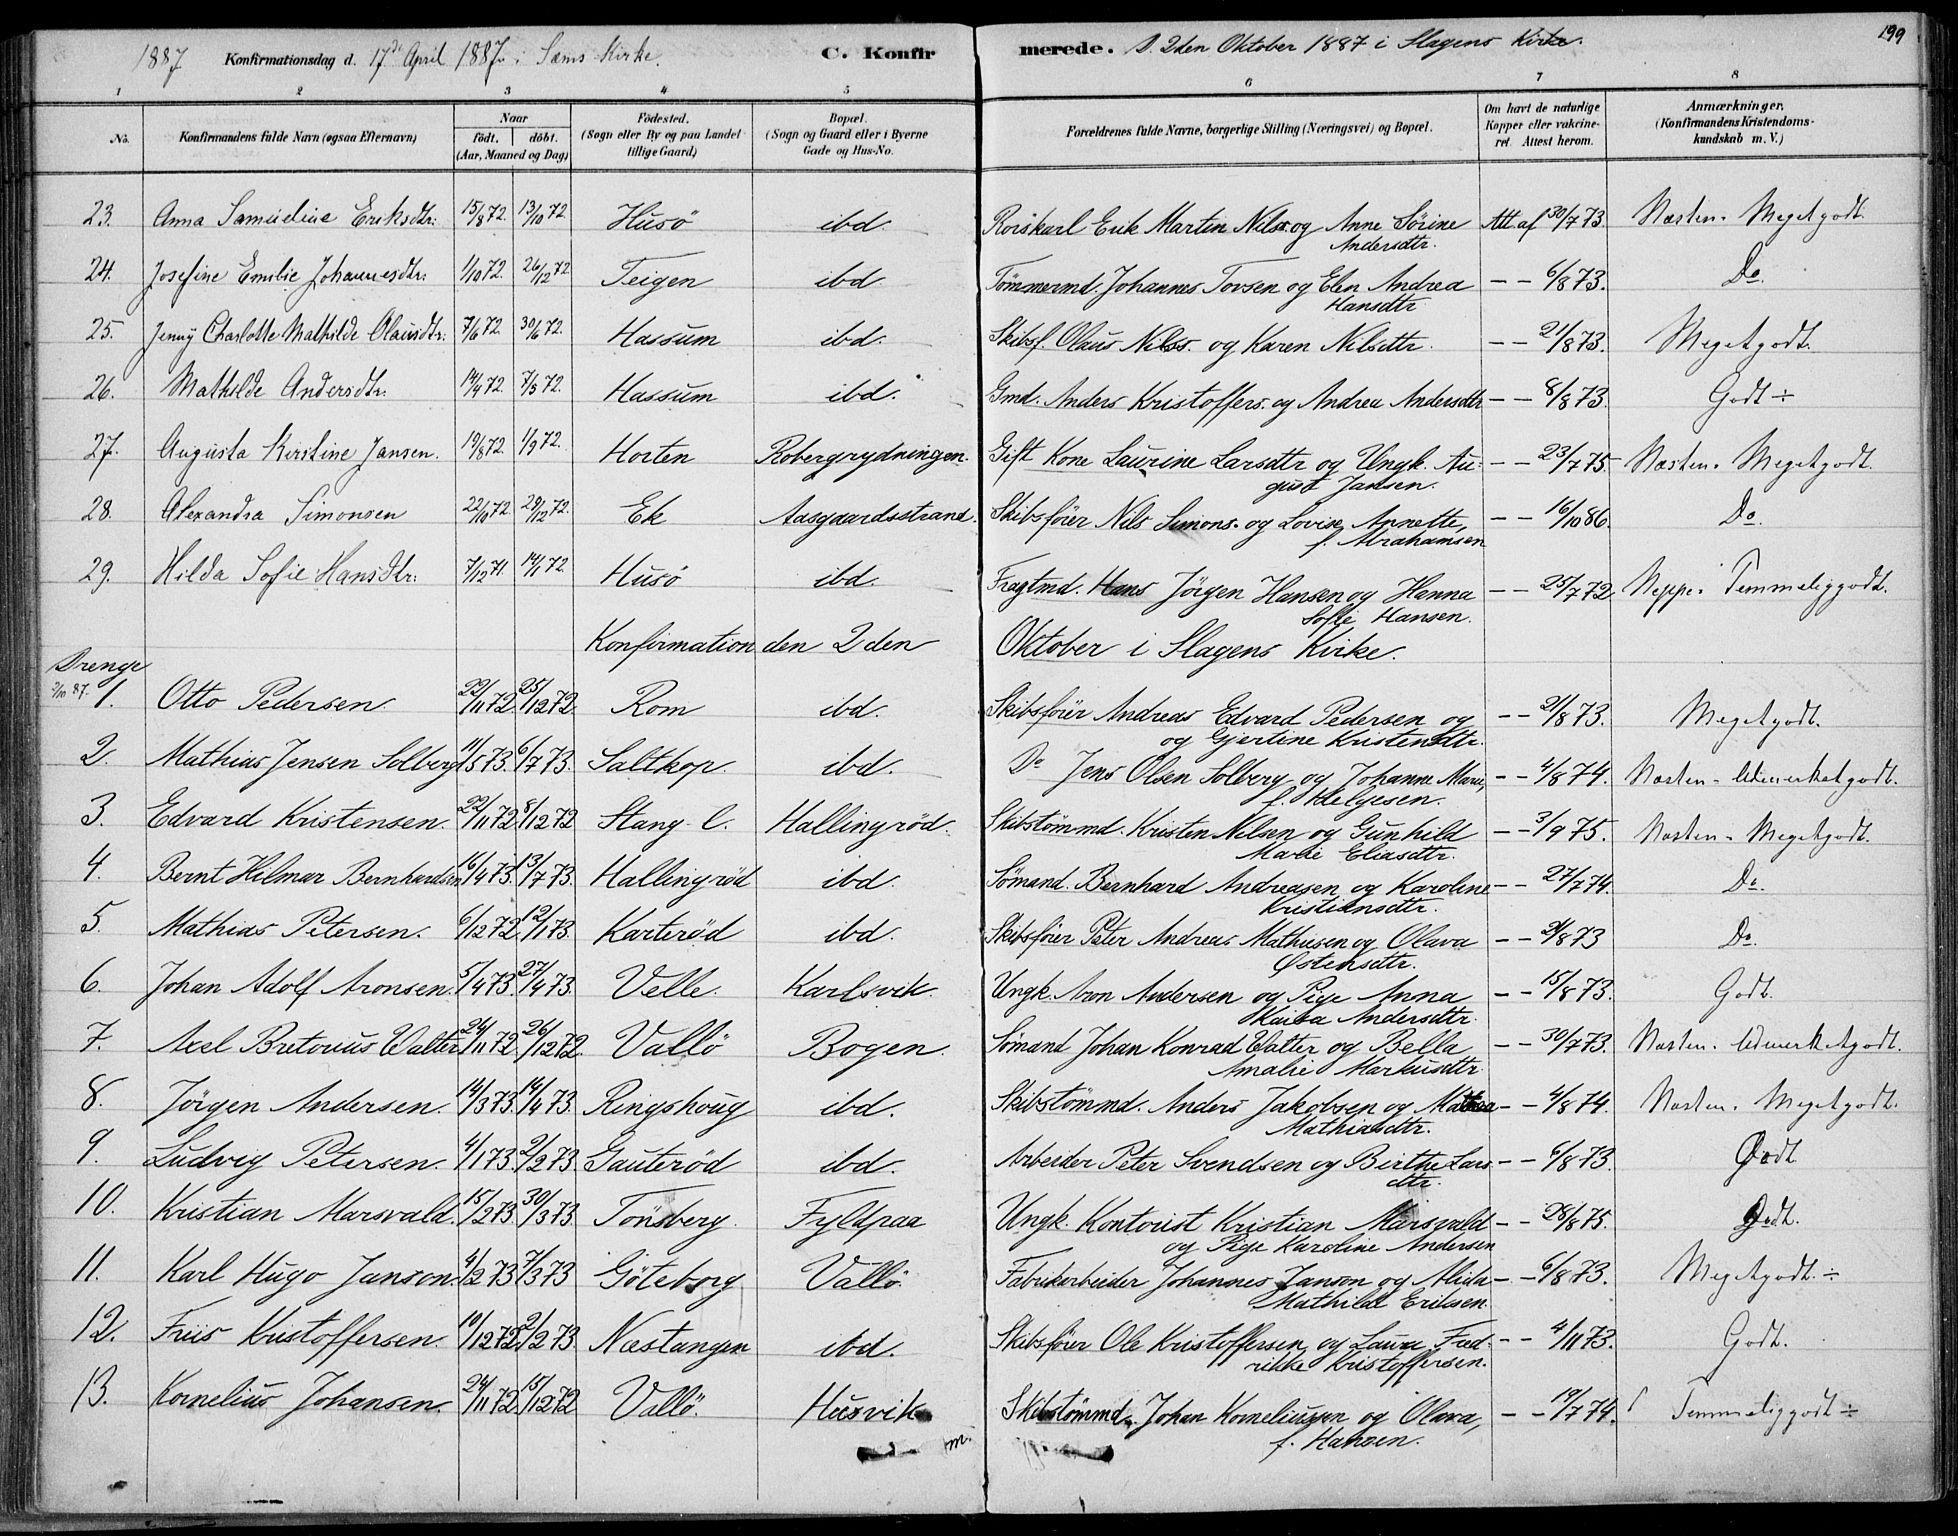 199
1887 Konfirmationsdag d. 17de April 1887 i Sems Kirke. C. Konfirmerede. D. 2den Oktober 1887 i Slagens Kirke.
1 2 3 4 5 6 7 8
No. Konfirmandens fulde Navn (ogsaa Efternavn) Naar födt. döbt. (Aar, Maaned og Dag) Födested. (Sogn eller By og paa Landet tillige Gaard) Bopæl. (Sogn og Gaard eller i Byerne Gade og Hus-No. Forældrenes fulde Navne, borgerlige Stilling (Næringsvei) og Bopæl. Om havt de naturlige Kopper eller vakcineret. Attest herom. Anmærkninger. (Konfirmandens Kristendomskundskab m. V.)
23. Anna Samueline Eriksdtr: 15/8 72. 13/10 72 Husö ibd. Rorskarl Erik Marten Nilss. og Anne Sörine Att. af 30/7 73. Næsten. Megetgodt.
Andersdtr.
24. Josefine Emilie Johannesdtr: 1/10 72. 26/12 72 Teigen ibd. Tömmermd. Johannes Tovsen og Elen Andrea - - 6/8 73. Do.
Hansdtr
25. Jenny Charlotte Mathilde Olausdtr: 7/6 72. 30/6 72. Hassum ibd. Skibsf. Olaus Nilss. og Karen Nilsdtr. - - 21/8 73. Megetgodt.
26. Mathilde Andersdtr. 14/4 72. 7/5 72. Hassum ibd. Gmd. Anders Kristoffers. og Andrea Andersdtr - - 8/8 73. Godt ÷
27. Augusta Kirstine Jansen. 19/8 72. 1/9 72. Horten Robergrydningen. Gift Kone Laurine Larsdtr og Ungk. Au- - - 23/7 75. Næsten. Megetgodt.
gust Jansen.
28. Alexandra Simonsen 22/10 72. 29/12 72. Ek Aasgaardsstrand. Skibsförer Nils Simons. og Lovise Annette, - - 16/10 86. Do.
f. Abrahamsen
29. Hilda Sofie Hansdtr: 7/12 71. 14/1 72. Husö ibd. Fragtmd. Hans Jörgen Hansen og Hanna - - 25/7 72 Neppe. Temmeliggodt.
Sofie Hansen.
Konfirmation den 2den Oktober i Slagens Kirke.
Drenge
2/10 87. 1. Otto Pedersen 22/11 72. 25/12 72 Rom ibd. Skibsförer Andreas Edvard Pedersen og - - 21/8 73. Megetgodt.
og Gjertine Kristensdtr.
2. Mathias Jensen Solberg 11/5 73. 6/7 73. Saltkop. ibd. Do Jens Olsen Solberg og Johanne Marie, - - 4/8 74. Næsten - Udmerketgodt.
f. Helgesen.
3. Edvard Kristensen. 22/11 72. 8/12 72 Stang l. Hallingröd. Skibstömmd. Kristen Nilsen og Gunhild - - 3/9 75. Næsten - Megetgodt.
Malie Eliasdtr.
4. Bernt Hilmar Bernhardsen 16/4 73. 13/7 73. Hallingröd ibd. Sömand. Bernhard Andreasen og Karoline - - 27/7 74. Do.
Kristiansdtr.
5. Mathias Petersen. 6/12 72. 12/1 73. Karteröd ibd. Skibsförer Peter Andreas Mathisen og Olava - - 21/8 73 Do.
Østensdtr.
6. Johan Adolf Aronsen. 5/4 73. 27/4 73. Velle. Karlsvik. Ungk. Aron Andersen og Pige Anna - - 15/8 73. Godt.
Maria Andersdtr.
7. Axel Bretovius Walter 24/11 72. 26/12 72. Vallö Bogen. Sömand Johan Konrad Walter og Bella - - 30/7 73. Næsten. Udmerketgodt.
Amalie Markusdtr.
8. Jörgen Andersen. 14/3 73. 14/4 73. Ringshoug ibd. Skibstömmd. Anders Jakobsen og Mathea - - 4/8 74. Næsten. Megetgodt.
Mathiasdtr.
9. Ludvig Petersen. 4/1 73. 2/2 73. Gauteröd ibd. Arbeider Peter Svendsen og Birthe Lars- - - 6/8 73. Godt
dtr.
10. Kristian Marsvald. 15/2 73. 30/3 73 Tönsberg. Fyldpaa Ungk. Kontorist Kristian Marsvald - - 28/8 75. Godt.
og Pige Karoline Andersen
11. Karl Hugo Janson. 4/2 73. 7/3 73 Göteborg Vallö. Fabrikarbeider Johannes Janson og Alida - - 6/8 73. Megetgodt. ÷
Mathilde Erikssen.
12. Friis Kristoffersen. 10/12 72. 2/2 73. Næstangen ibd. Skibsförer Ole Kristoffersen og Laura Fred- - - 4/11 73. Godt.
rikke Kristoffersen.
13. Kornelius Johansen. 24/11 72. 15/12 72 Vallö. Husvik Skibstömmd. Johan Korneliussen og Olava, - - 19/7 74. Temmeliggodt ÷
f. Hansen.
m.